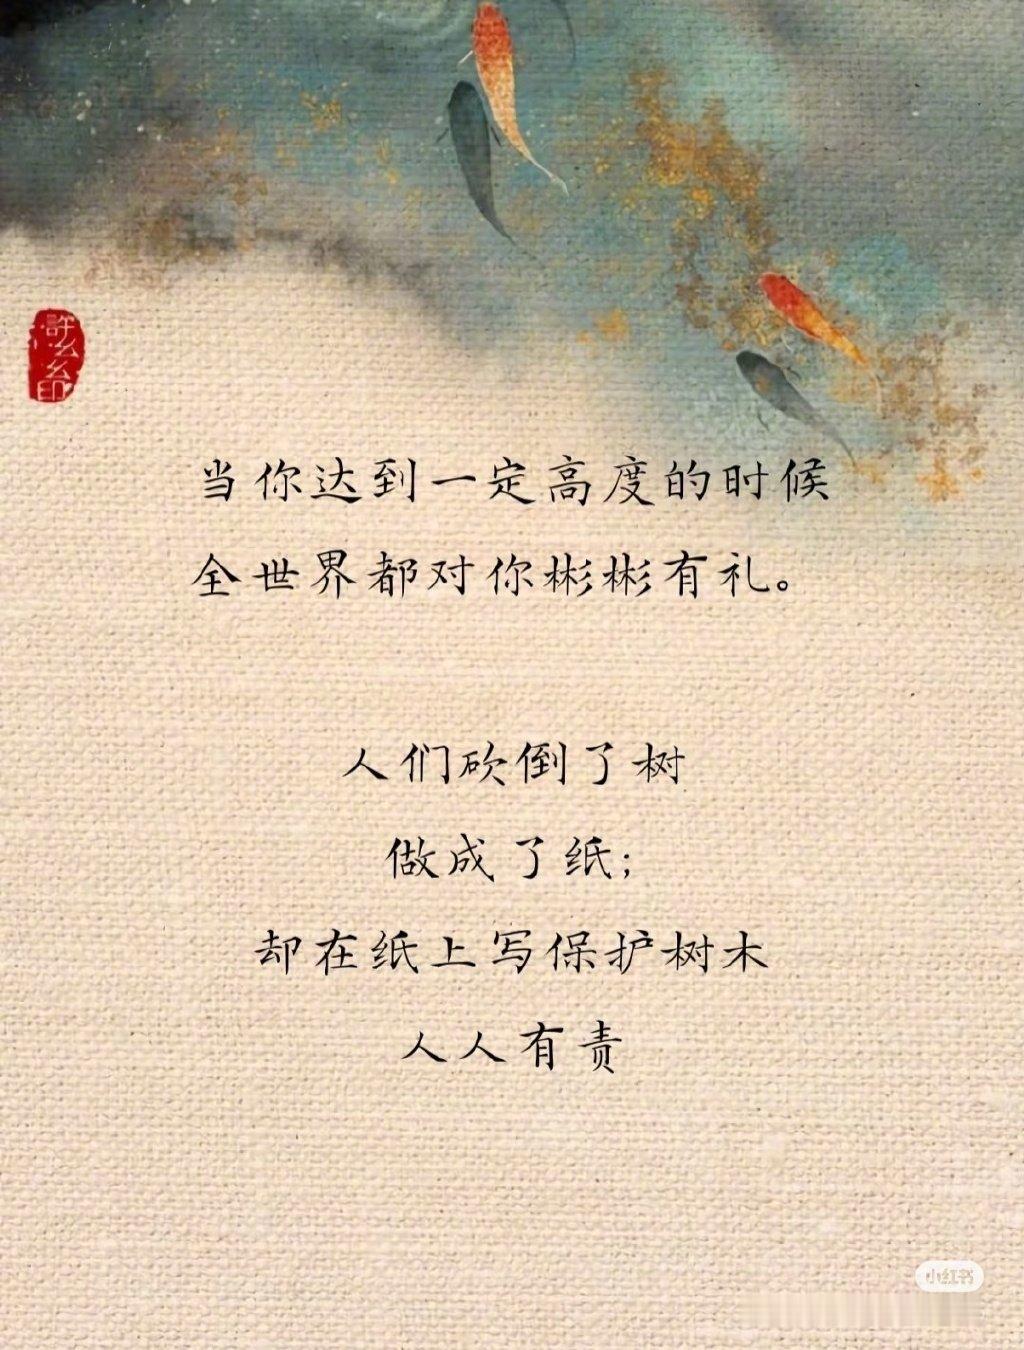 当你达到一定高度的时候
全世界都对你彬彬有礼。
人们砍倒了树
做成了纸;
却在纸上写保护树木
人人有责
小红书